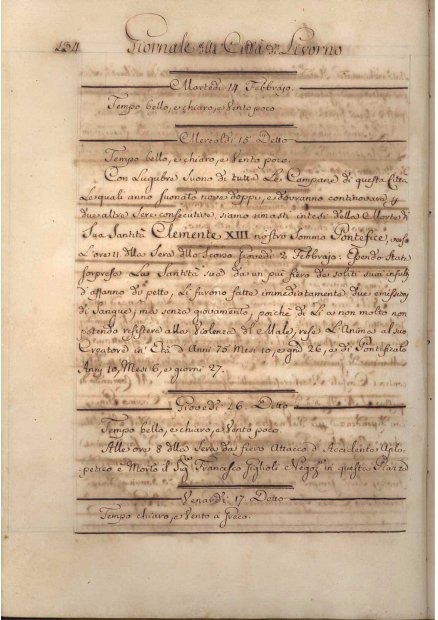 234 Giornale della Città di Livorno
Martedì 14 Febbrajo.
Tempo bello, e chiaro, e Vento poco
Mercoldì 15 Detto
Tempo bello, e chiaro, e Vento poco.
Con Lugubre Suono di tutte Le Campane di questa Città
Le quali anno suonato nove doppj, e dovranno continovare p
due altre Sere consecutive, siamo rimasti intesi della Morte di
Sua Santità Clemente XIII nostro Sommo Pontefice, verso
L'ore 11 della Sera dello Scorso Giovedì 2 Febbrajo: Essendo stata
sorpresa La Santità sua da un più fiero dei soliti suoi insulti
d'affanno di petto, Li furono fatte immediatamente due emissioni
di Sangue, ma senza giovamento, poichè di Lì a non molto non
potendo resistere alla Violenza del Male, rese L'Anima al suo
Creatore in Età d'Anni 75 Mesi 10, e gni 26, e di Pontificato
Anni 10, Mesi 6, e giorni 27.
Giovedì 26. Detto
Tempo bello, e chiaro, e Vento poco
Alle ore 8 della Sera da fiero Attacco d'Accidente Aplo-
petico è Morto il Sigr Francesco Figlioli Negozte in questa Piazza
Venardì 17. Detto
Tempo chiaro, e Vento a Greco.